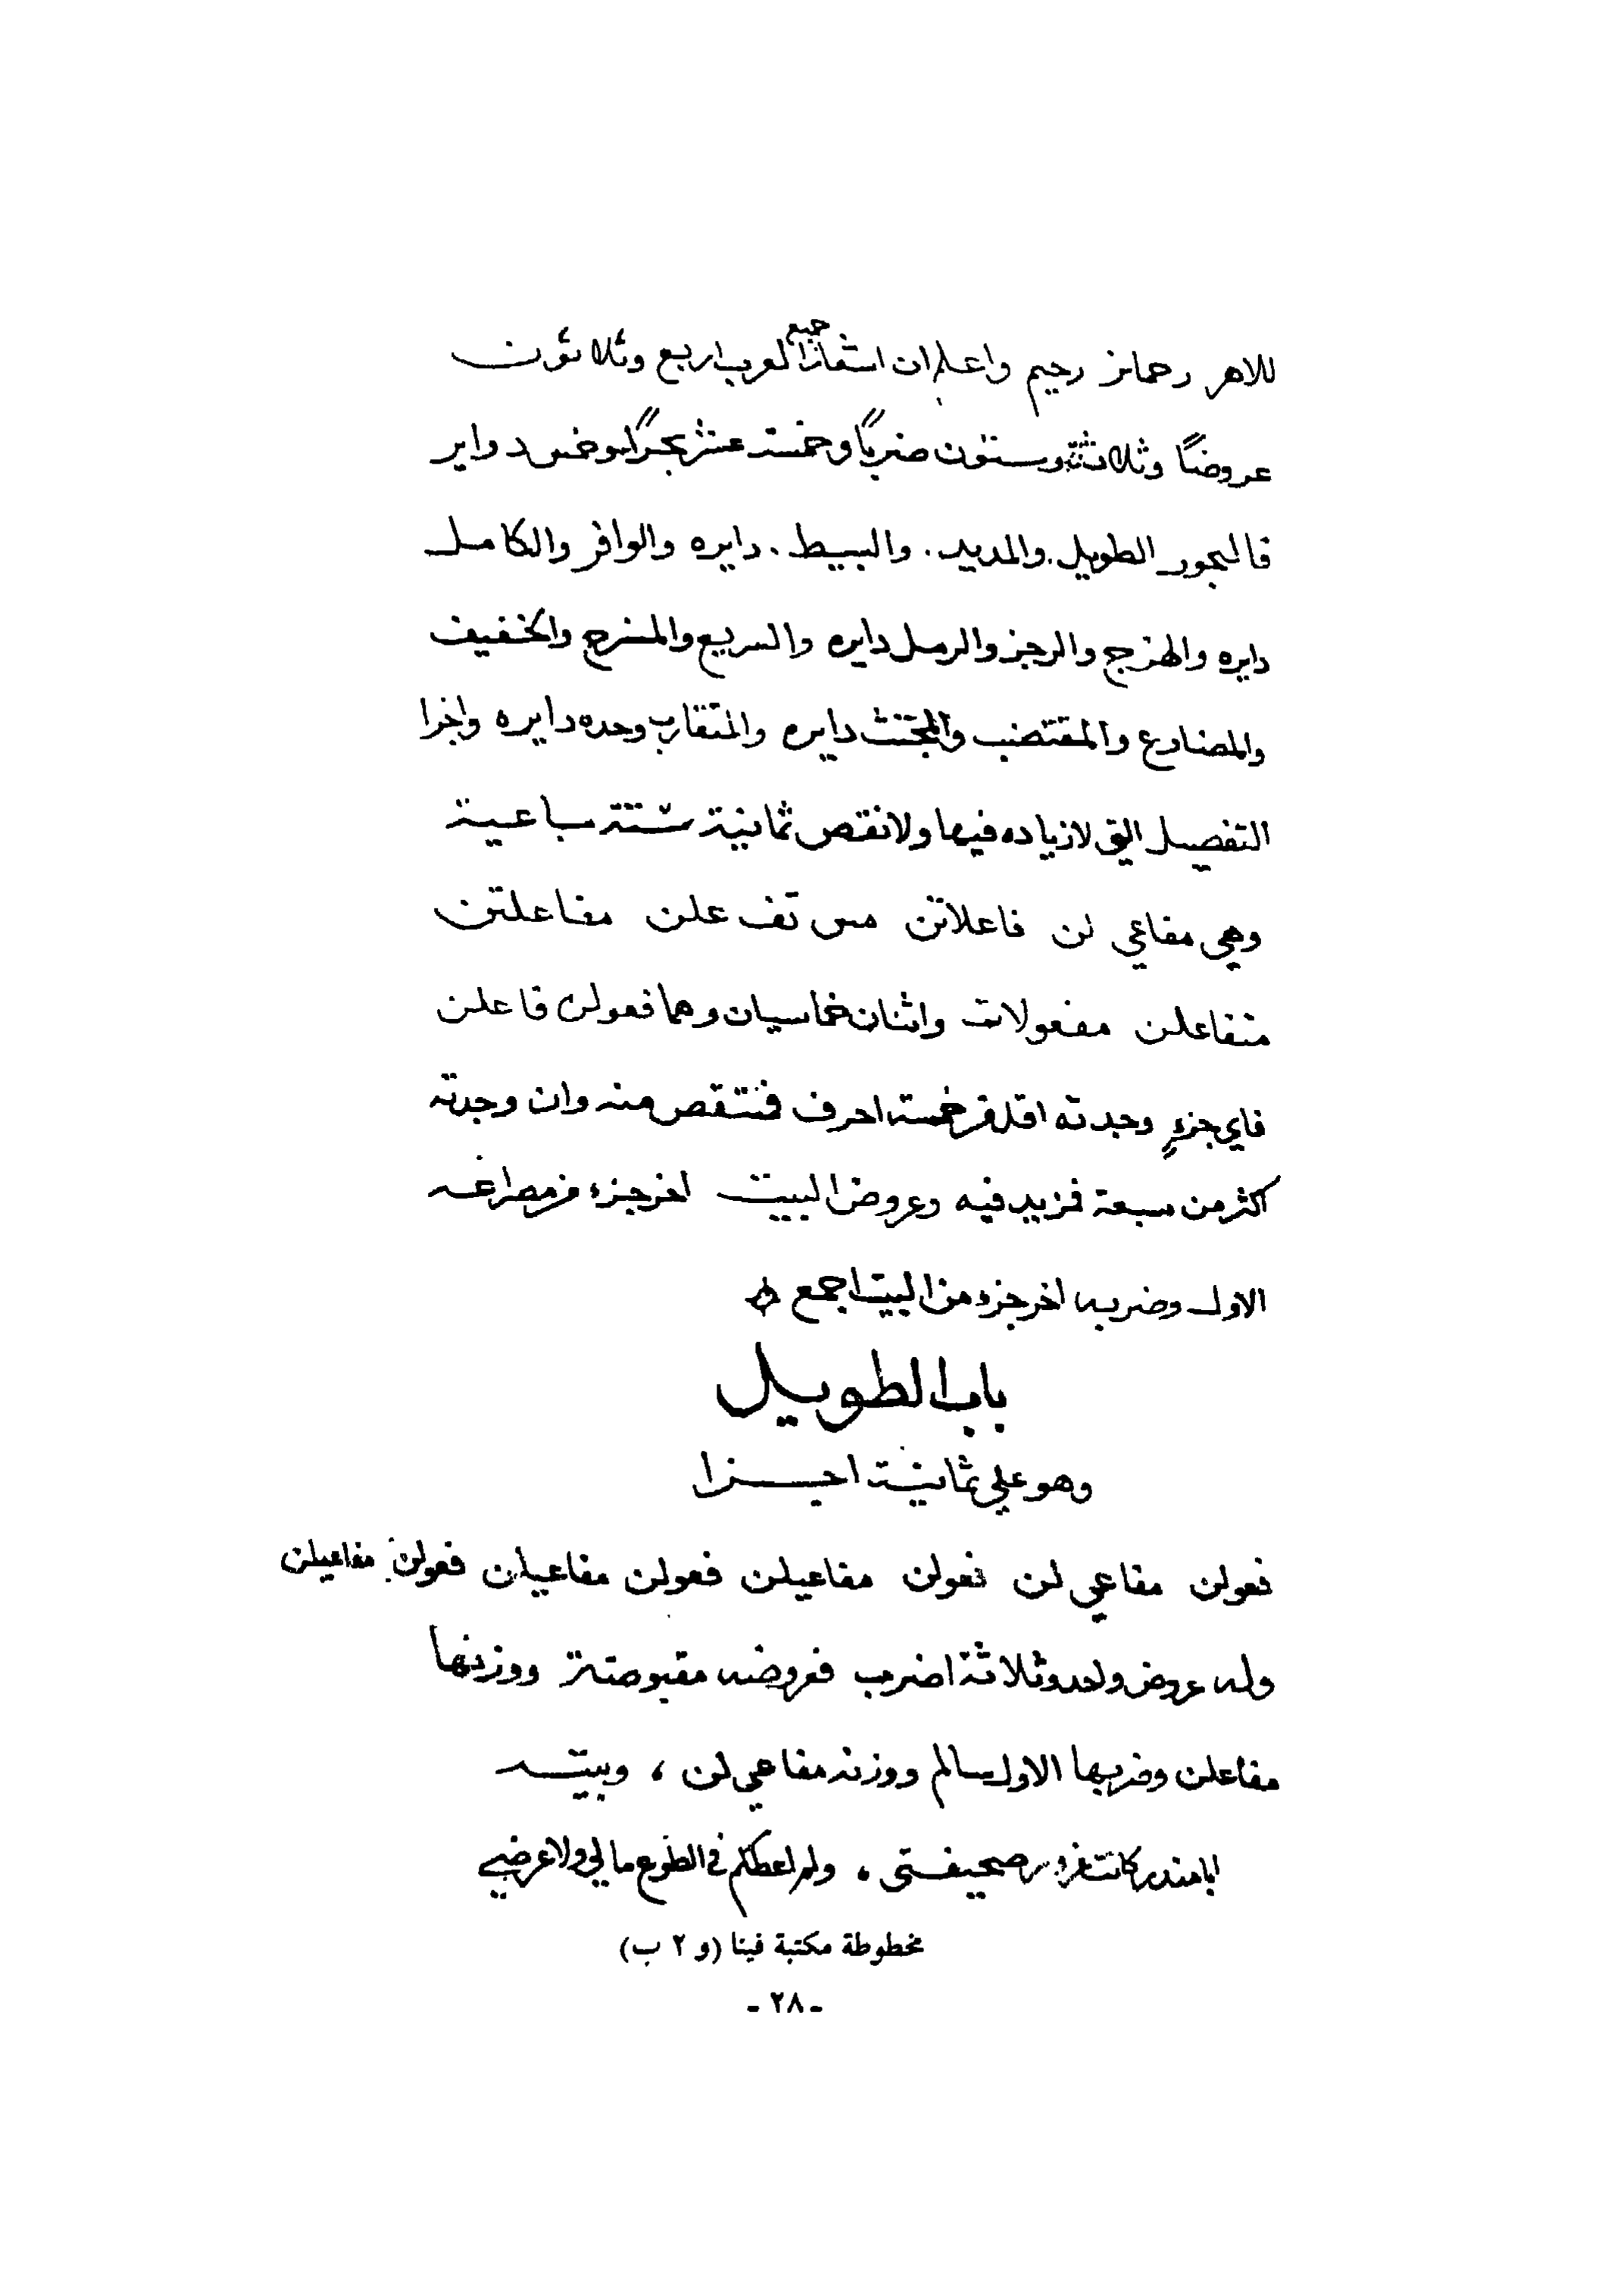 للاهر رحمان رحيم واعلم ان اشعار جميع العرب اربع وثلاثون
عروضًا وثلاثة وستون ضربًا وخمسة عشر بحرًا وخمس دواير
فالبحور الطويل. والمديد. والبسيط. دايره والوافر والكامل
دايره والهزج والرجز والرمل دايره والسريع والمنسرح والخفيف
والمضارع والمقتضب والمجتث دايره والمتقارب وحده دايره واجزا
التفصيل التي لازياده فيها ولا نقص ثمانية ستة سباعية
وهي مفاعي لن فاعلاتن مس تف علن مفاعلتن
متفاعلن مفعولات واثنان خماسيان وهما فعولن فاعلن
فاي جزءٍ وجدته اقل من خمسة احرف فنتقص منه وان وجدته
اكثر من سبعة فزيد فيه وعروض البيت اخر جزء من مصراعه
الاول وضربه اخر جزء من البيت اجمع
باب الطويل
وهو علي ثمانية اجزا
فعولن مفاعي لن فعولن مفاعيلن فعولن مفاعيلن فعولن مفاعيلن
وله عروض واحد وثلاثة اضرب فعروضه مقبوضة ووزنها
مفاعلن وضربها الاول سالم ووزنه مفاعي لن ، وبيته
ابا منذر كانت غرورا صحيفتي ، ولم اعطكم في الطوع مالي ولا عرضي
مخطوطة مكتبة فينا (و ٢ ب)
- ٢٨ -